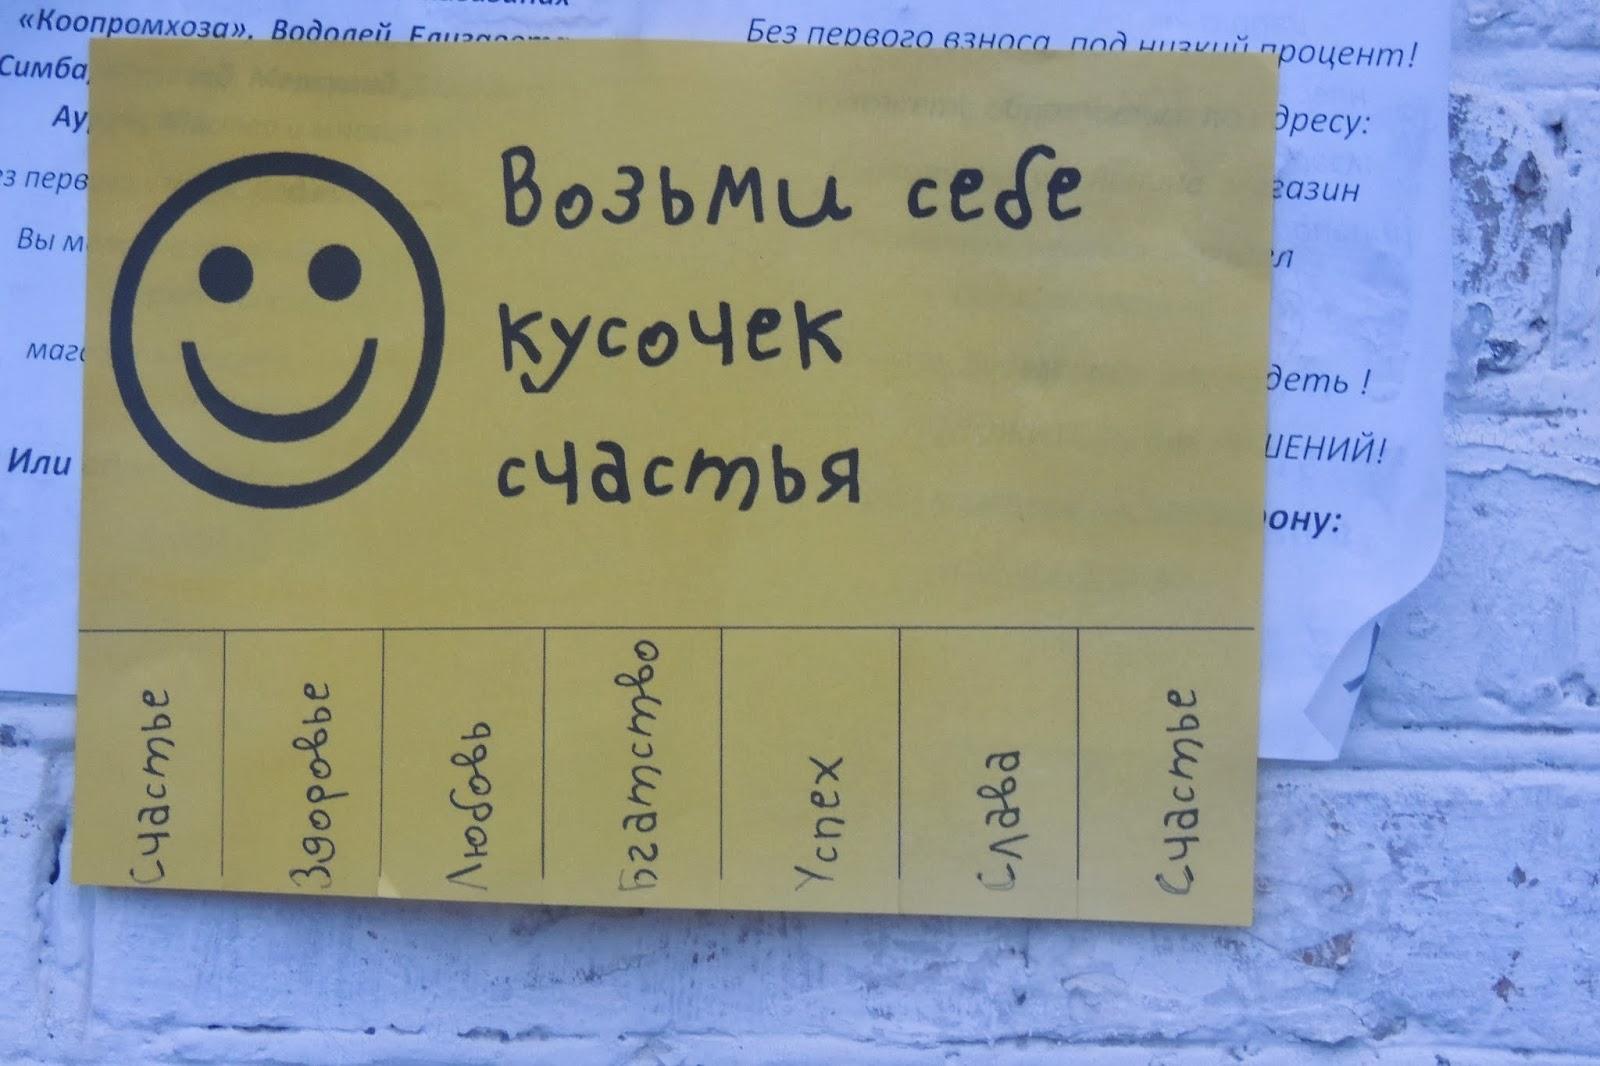 «Коопромхоза», Водолей Елизавета
Симба,
Ау
Вы м
мага
Или
Без первого взноса, под низкий процент!
дресу:
газин
л
деть !
ШЕНИЙ!
ону:
Возьми себе
кусочек
счастья
Счастье
Здоровье
Любовь
Бгатство
Успех
Слава
Счастье